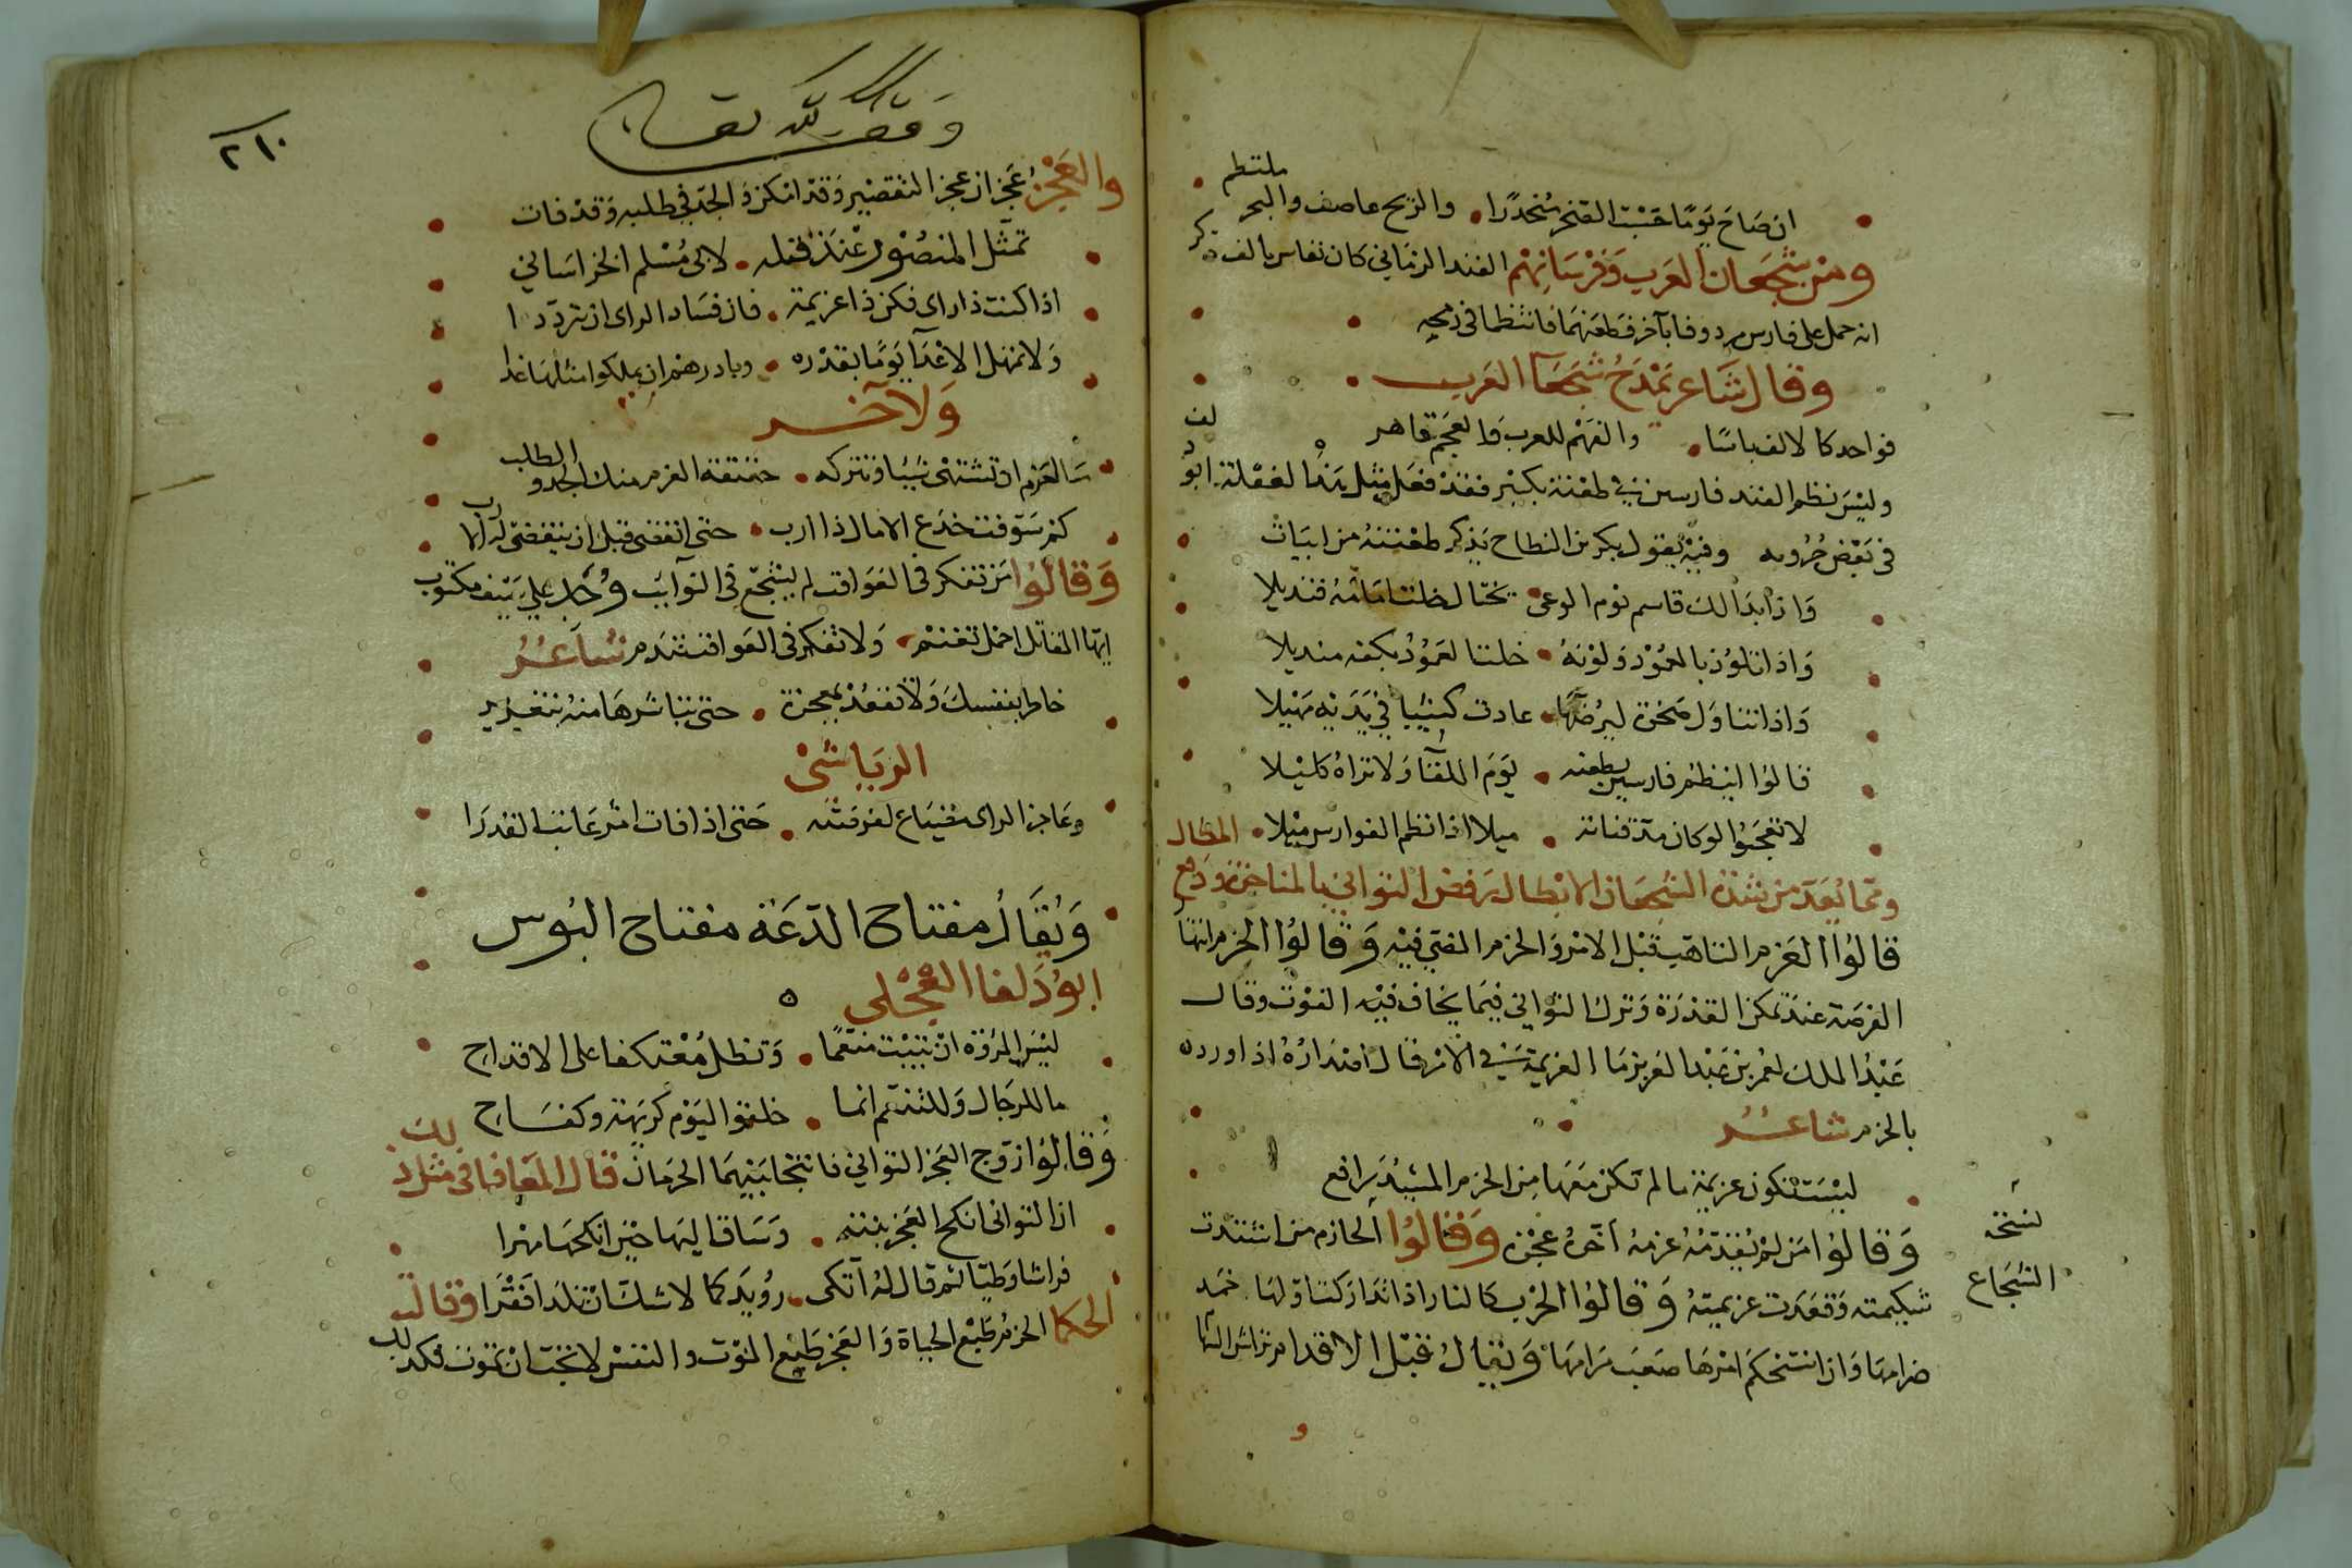 ان صاح يوما حسبت الصخر منحدرا والريح عاصف والبحر ملتطم
ومن شجعان العرب وفرسانهم الفند الزماني كان تقاس بالف ذكر
انه حمل على فارس مردوفا بآخر فطعنهما فانتظما في رمحه
وقال شاعر يمدح شجعآ العرب
فواحدكا لالف باسا والفهم للعرب والعجم قاهر
وليس نظم الفند فارسين في طعنة بكبير فقد فعل مثل هذا لفعلة ابو دلف
في بعض حروبه وفيه يقول بكر بن النطاح يذكر طعنته من ابيات
واذا بدا لك قاسم يوم الوغى يختال خلت امامه قنديلا
واذا تلوذ بالعمود ولونه خلت العمود بكفه منديلا
واذا تناول صخرة ليرضها عادت كثيبا في يديه مهيلا
قالوا اينظم فارسين بطعنه يوم اللقآ ولا تراه كليلا
لا تعجبوا لو كان مد قناته ميلا اذا نظم الفوارس ميلا المطال
ومما يعد من شدة الشجعان الابطال رفض التواني بالمناجزة ودفع
قالوا العزم التاهب قبل الامر والحزم المضي فيه وقالوا الحزم انتها
الفرصة عند تمكن القدرة وترك التواني فيما يخاف فيه الفوت وقال
عبد الملك لعمر بن عبد العزيز ما العزيمة في الامر قال اصداره اذا اورده
بالحزم شاعر
ليست تكون عزيمة ما لم تكن معها من الحزم المشيد رافع
وقالوا من لم يقدمه عزمه اخره عجزه وقالوا الحازم من اشتدت
شكيمته وقعدت عزيمته وقالوا الحرب كالنار اذا تداركت اولها خمد
ضرامها واذا استحكم امرها صعب مرامها ويقال قبل الاقدام تراش السها
نسخة
الشجاع
وقف لله تعالى
٢١٠
والعجز عجزان عجز التقصير وقد امكن والجد في طلبه وقد فات
تمثل المنصور عند قتله لابى مسلم الخراساني
اذا كنت ذا راى فكن ذا عزيمة فان فساد الراى ان تترددا
ولا تمهل الاعدا يوما بقدره وبادرهم ان يملكوا مثلها غدا
ولآخر
ما العزم ان تشتهى شيئا وتتركه حقيقة العزم منك الجد والطلب
كم سوفت خدع الامال ذا ارب حتى انقضى قبل ان يقضى له ارب
وقالوا من تفكر في العواقب لم يشجع في النوايب وجد على سيف مكتوب
ايها المقاتل احمل تغنم ولا تفكر في العواقب تندم شاعر
خاطر بنفسك ولا تقعد بمعجزة حتى تباشرها منه بتغرير
الرياشى
وعاجز الراى مضياع لفرصته حتى اذا فات امر عاتب القدرا
ويقال مفتاح الدعة مفتاح البوس
ابو دلف العجلى
ليس المروة ان تبيت منعما وتظل معتكفا على الاقداح
ما للرجال وللتنعم انما خلقوا اليوم كريهة وكفاح
وقالوا زوج العجز التواني فانتجا بينهما الحرمان قال المعافا في مثل ذلك
ان التوانى انكح العجز بنته وساق اليها حين انكحها مهرا
فراشا وطيا ثم قال له اتكى رويدكما لا شك ان تلدا فقرا وقالت
الحكما الحزم طبع الحياة والعجز طبع الموت والنفس لا تحب ان تموت فكذلك